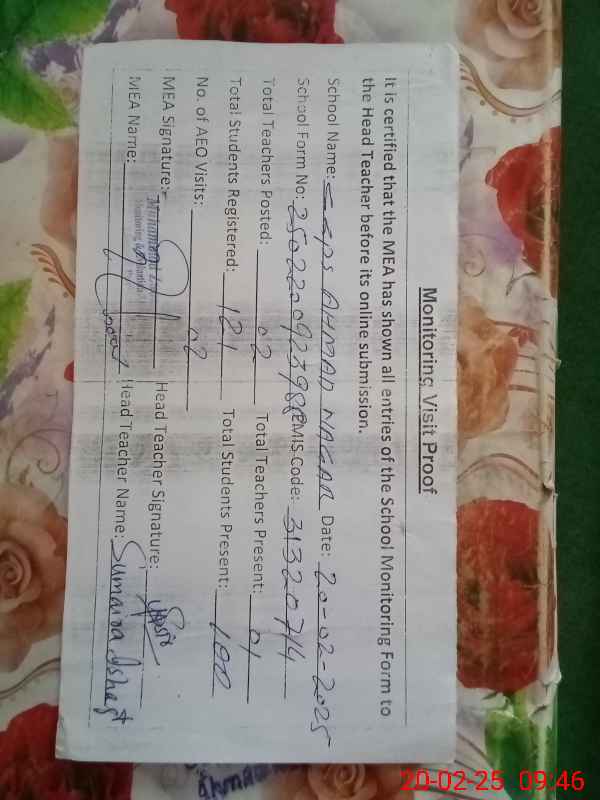 Monitoring Visit Proof
It is certified that the MEA has shown all entries of the School Monitoring Form to
the Head Teacher before its online submission.
School Name: GGPS AHMAD NAGAR Date: 20-02-2025
School Form No: EMIS Code: 31320714
Total Teachers Posted: 02 Total Teachers Present: 01
Total Students Registered: 121 Total Students Present: 100
No. of AEO Visits: 02
MEA Signature: Head Teacher Signature:
MEA Name: Head Teacher Name: Sumaira Ishaq
20-02-25 09:46